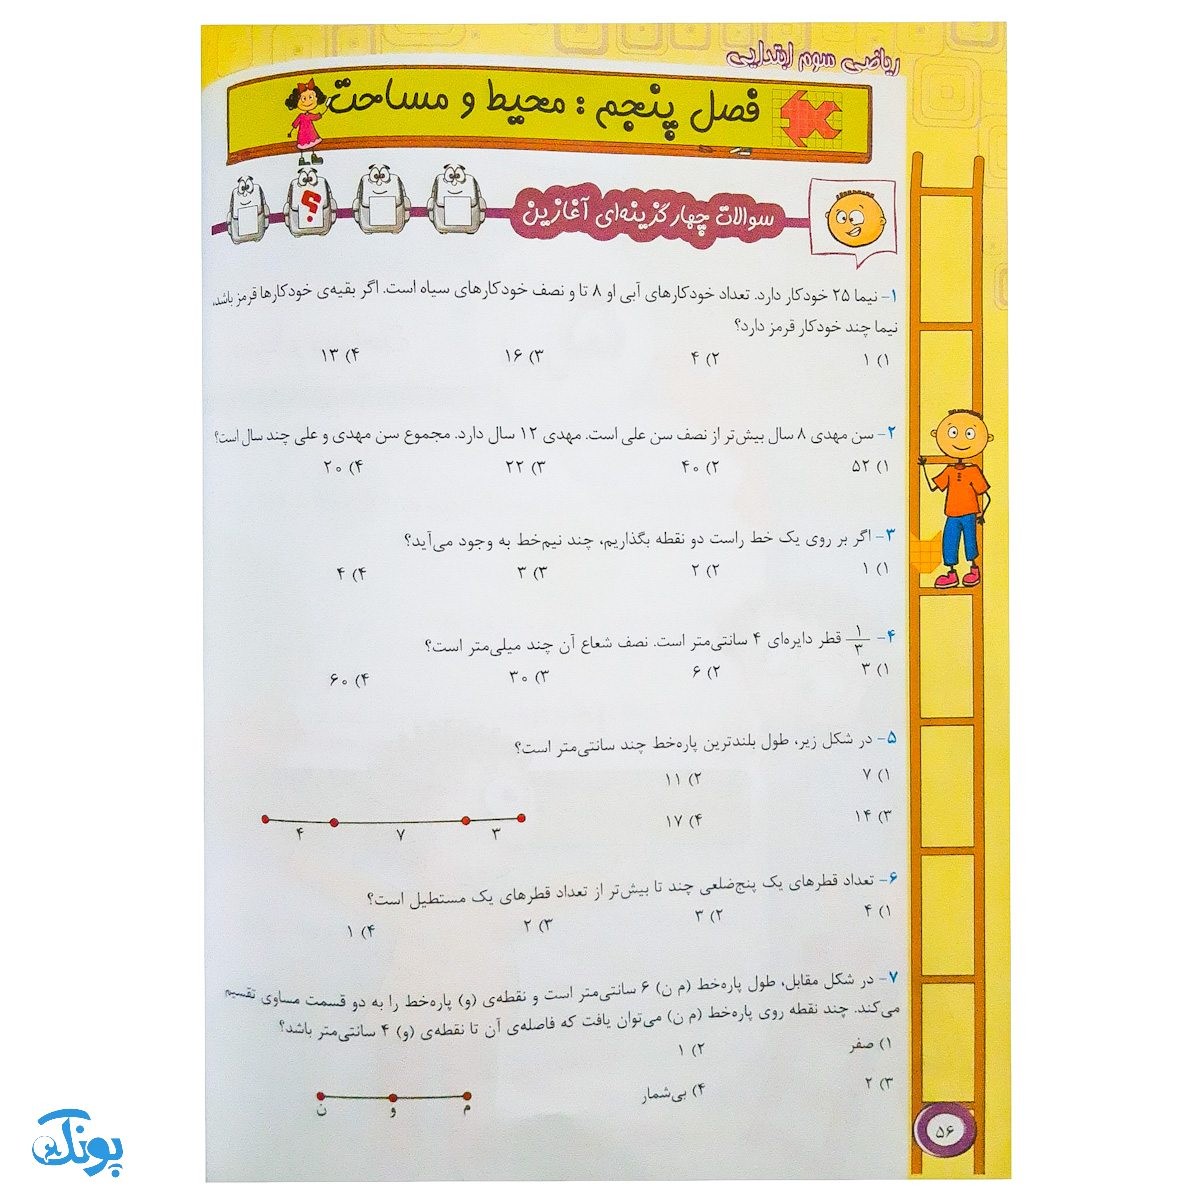 ریاضی سوم ابتدایی
فصل پنجم : محیط و مساحت
سوالات چهارگزینه‌ای آغازین
؟
۱- نیما ۲۵ خودکار دارد. تعداد خودکارهای آبی او ۸ تا و نصف خودکارهای سیاه است. اگر بقیه‌ی خودکارها قرمز باشد،
نیما چند خودکار قرمز دارد؟
۱) ۱ ۲) ۴ ۳) ۱۶ ۴) ۱۳
۲- سن مهدی ۸ سال بیش‌تر از نصف سن علی است. مهدی ۱۲ سال دارد. مجموع سن مهدی و علی چند سال است؟
۱) ۵۲ ۲) ۴۰ ۳) ۲۲ ۴) ۲۰
۳- اگر بر روی یک خط راست دو نقطه بگذاریم، چند نیم‌خط به وجود می‌آید؟
۱) ۱ ۲) ۲ ۳) ۳ ۴) ۴
۴- ۱/۳ قطر دایره‌ای ۴ سانتی‌متر است. نصف شعاع آن چند میلی‌متر است؟
۱) ۳ ۲) ۶ ۳) ۳۰ ۴) ۶۰
۵- در شکل زیر، طول بلندترین پاره‌خط چند سانتی‌متر است؟
۱) ۷ ۲) ۱۱
۳) ۱۴ ۴) ۱۷
۳ ۷ ۴
۶- تعداد قطرهای یک پنج‌ضلعی چند تا بیش‌تر از تعداد قطرهای یک مستطیل است؟
۱) ۴ ۲) ۳ ۳) ۲ ۴) ۱
۷- در شکل مقابل، طول پاره‌خط (م ن) ۶ سانتی‌متر است و نقطه‌ی (و) پاره‌خط را به دو قسمت مساوی تقسیم
می‌کند. چند نقطه روی پاره‌خط (م ن) می‌توان یافت که فاصله‌ی آن تا نقطه‌ی (و) ۴ سانتی‌متر باشد؟
۱) صفر ۲) ۱
۳) ۲ ۴) بی‌شمار
م و ن
۵۶
پونک